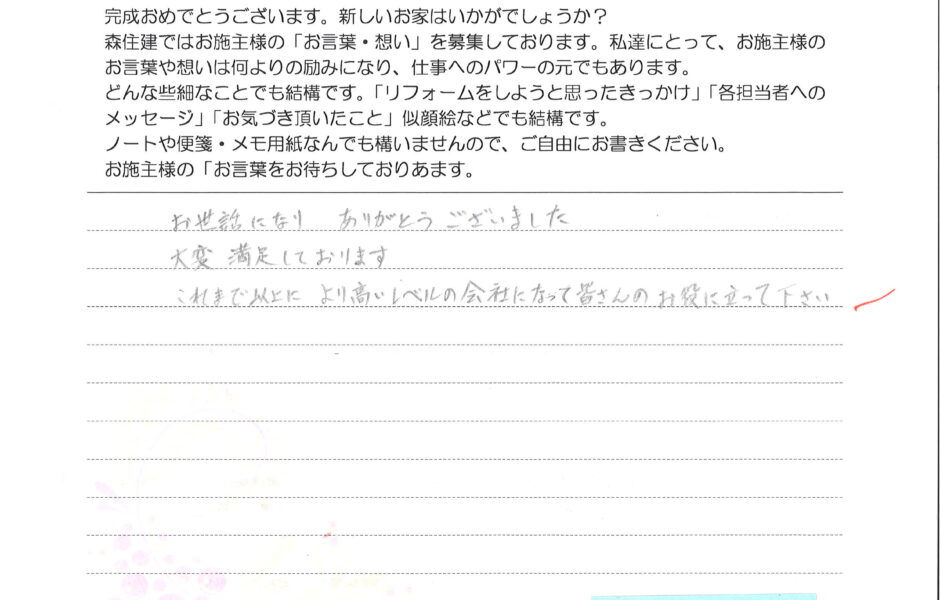 完成おめでとうございます。新しいお家はいかがでしょうか？
森住建ではお施主様の「お言葉・想い」を募集しております。私達にとって、お施主様の
お言葉や想いは何よりの励みになり、仕事へのパワーの元でもあります。
どんな些細なことでも結構です。「リフォームをしようと思ったきっかけ」「各担当者への
メッセージ」「お気づき頂いたこと」似顔絵などでも結構です。
ノートや便箋・メモ用紙なんでも構いませんので、ご自由にお書きください。
お施主様の「お言葉をお待ちしておりあます。
お世話になり ありがとうございました
大変 満足しております
これまで以上に より高いレベルの会社になって皆さんのお役に立って下さい